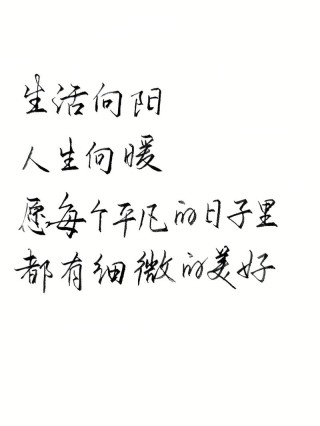 生活向阳
人生向暖
愿每个平凡的日子里
都有细微的美好